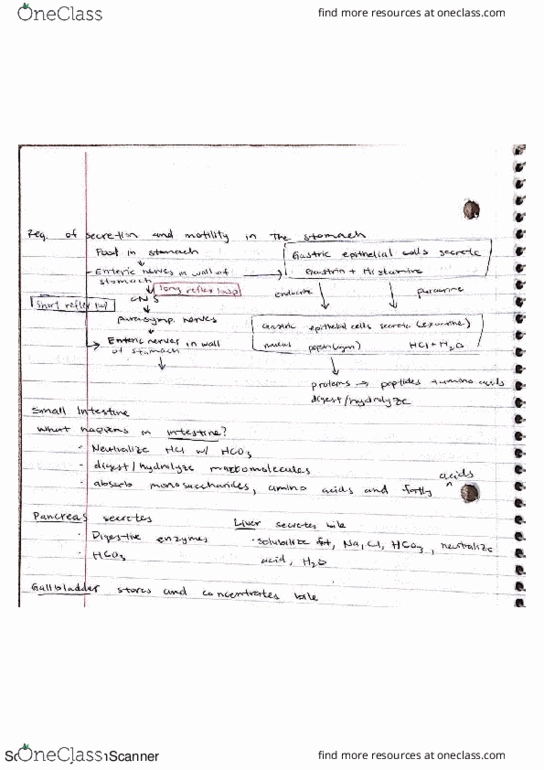 OneClass
find more resources at oneclass.com
Reg. of secretion and motility in the stomach
Food in stomach
- Enteric nerves in wall of stomach
Gastric epithelial cells secrete
Gastrin + Histamine
long reflex loop
CNS
short reflex
endocrine
paracrine
parasymp. nerves
Enteric nerves in wall
of stomach
Gastric epithelial cells secrete (exocrine)
HCl + H2O
proteins → peptides + amino acids
digest/hydrolyze
Small Intestine
What happens in intestine?
· Neutralize HCl w/ HCO3
· digest/hydrolyze macromolecules
· absorb monosaccharides, amino acids and fatty acids
Pancreas secretes
Liver secretes bile
· Digestive enzymes
· solubilize fat, Na, Cl, HCO3, neutralize
· HCO3
acid, H2O
Gallbladder stores and concentrates bile
OneClass
Scanner
find more resources at oneclass.com